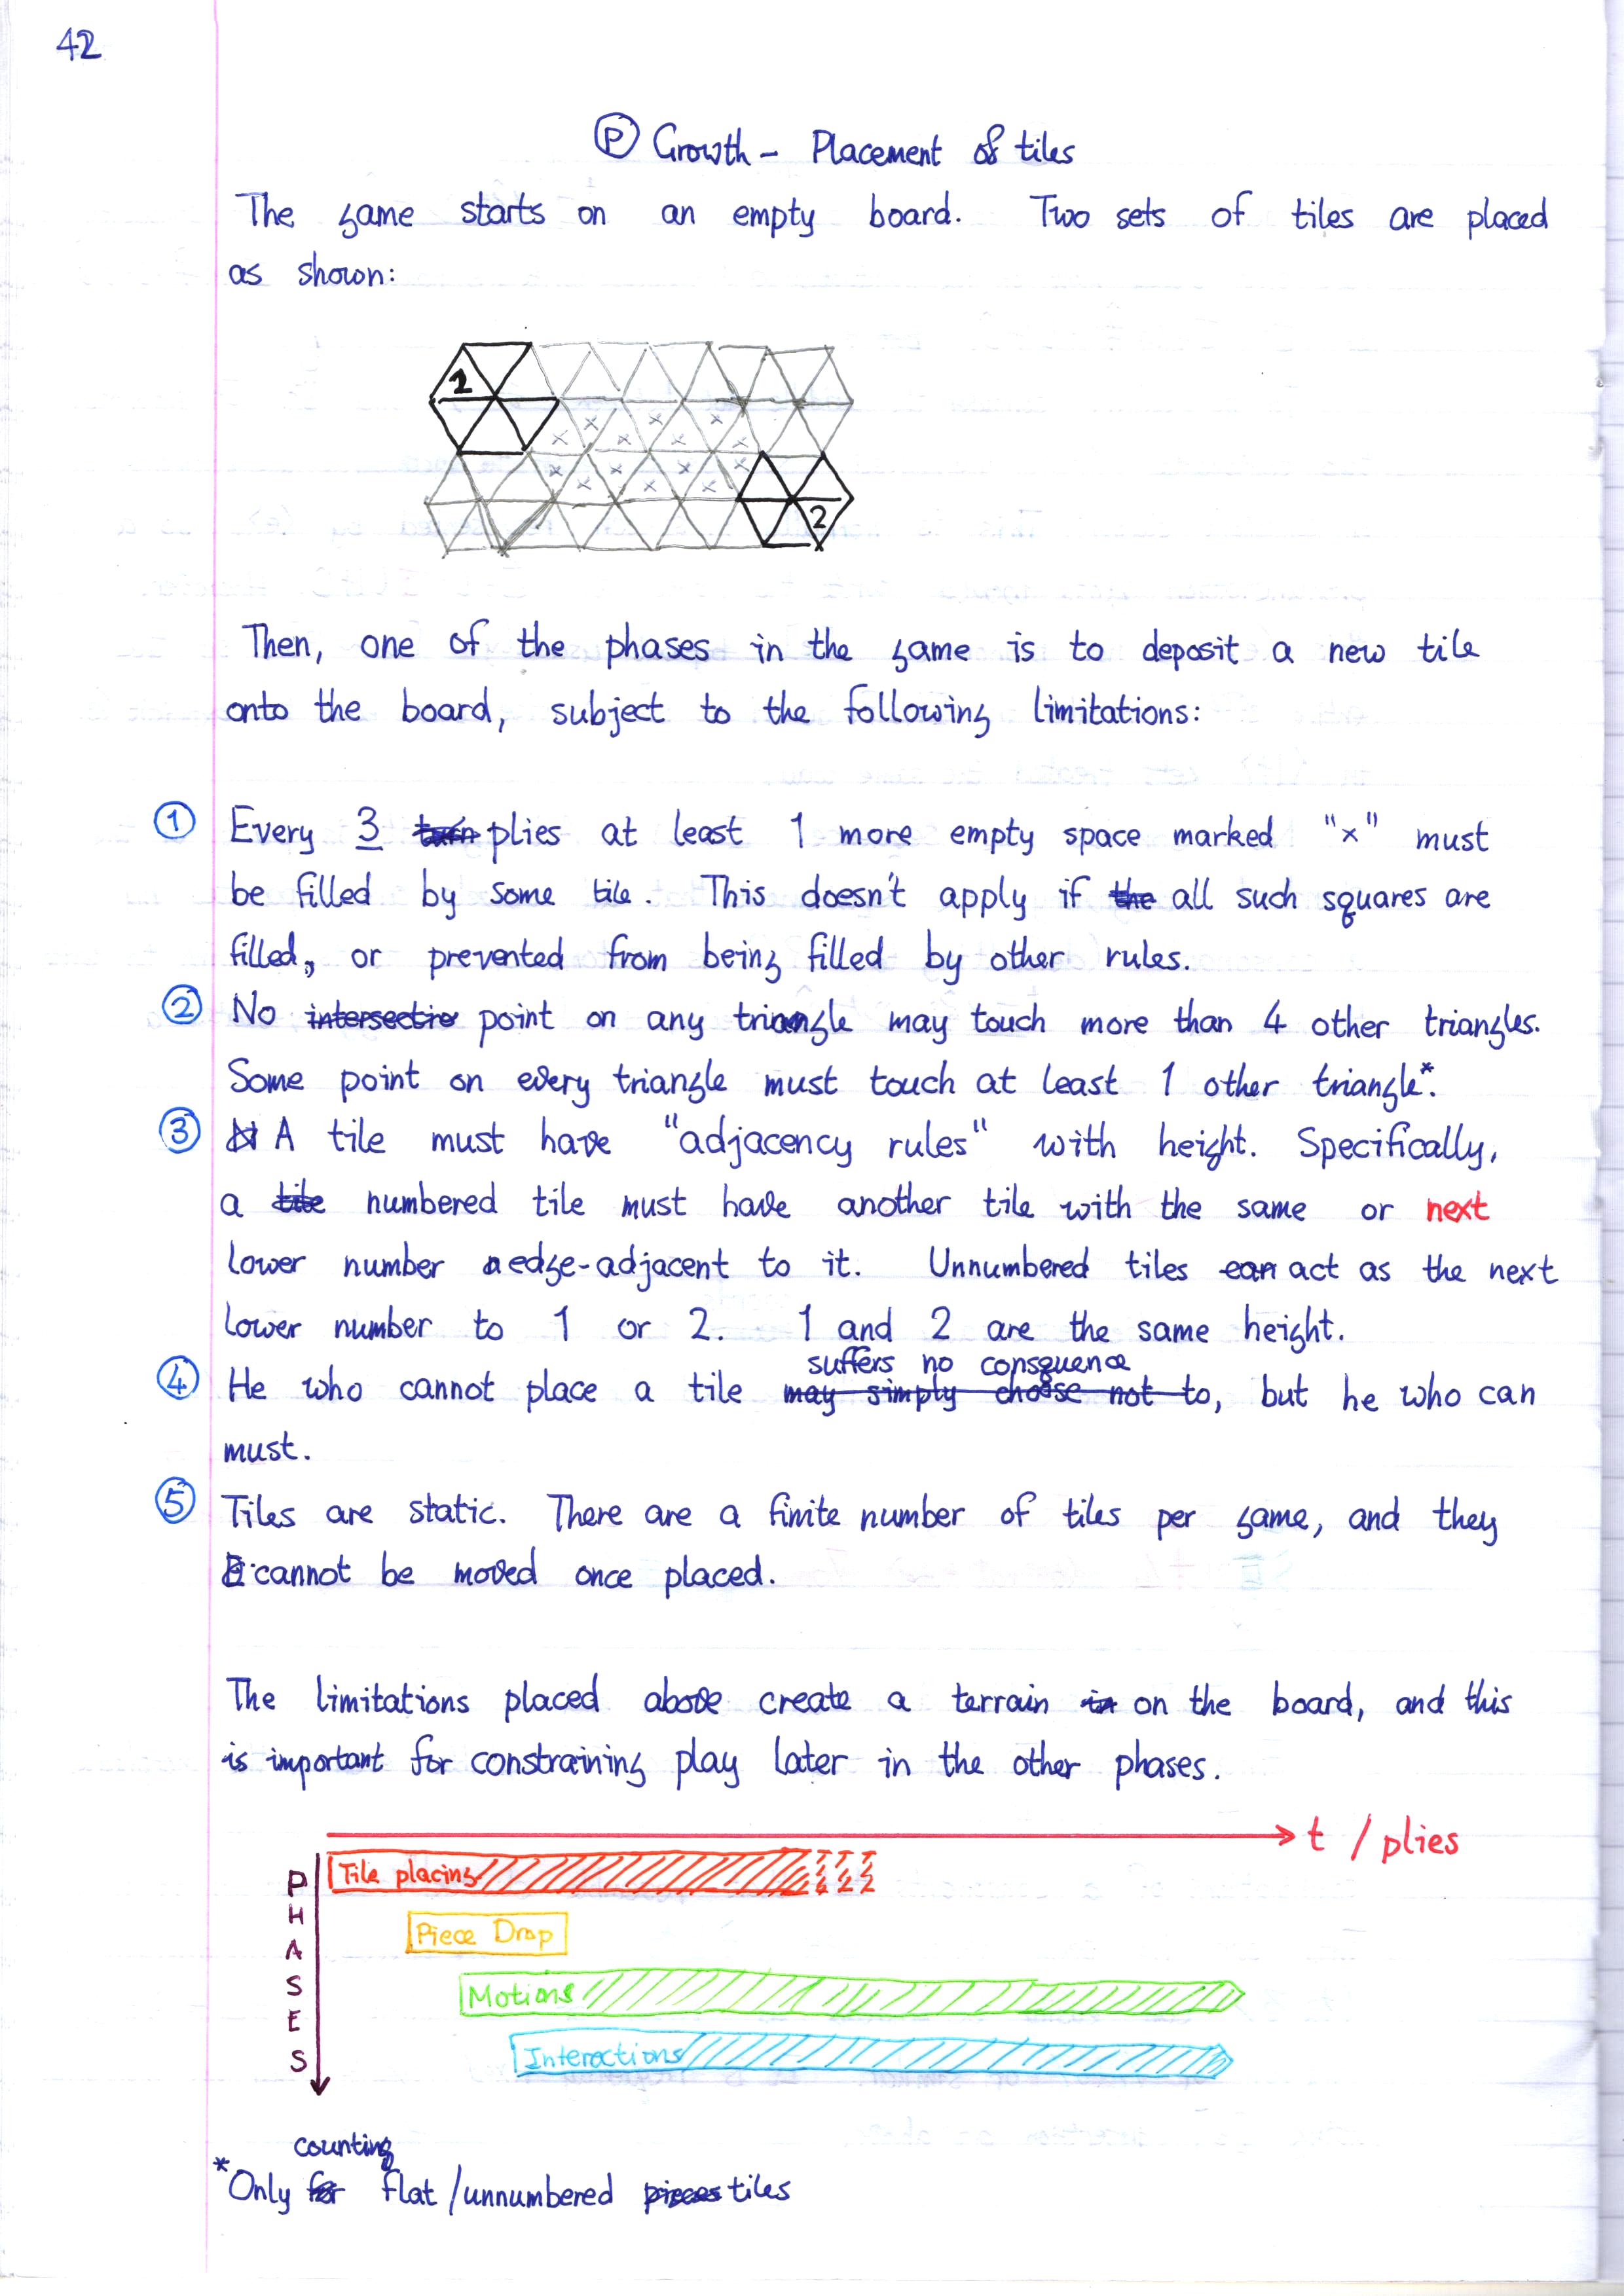 42
Ⓟ Growth - Placement of tiles
The game starts on an empty board. Two sets of tiles are placed
as shown:
1
x x x
x x x x
x x x x
x x x
2
Then, one of the phases in the game is to deposit a new tile
onto the board, subject to the following limitations:
① Every 3 turn plies at least 1 more empty space marked "x" must
be filled by some tile. This doesn't apply if the all such squares are
filled, or prevented from being filled by other rules.
② No intersectio point on any triangle may touch more than 4 other triangles.
Some point on every triangle must touch at least 1 other triangle*.
③ A tile must have "adjacency rules" with height. Specifically,
a tile numbered tile must have another tile with the same or next
lower number edge-adjacent to it. Unnumbered tiles can act as the next
lower number to 1 or 2. 1 and 2 are the same height.
suffers no consquence
④ He who cannot place a tile may simply choose not to, but he who can
must.
⑤ Tiles are static. There are a finite number of tiles per game, and they
cannot be moved once placed.
The limitations placed above create a terrain in on the board, and this
is important for constraining play later in the other phases.
t / plies
PHASES
Tile placing
Piece Drop
Motions
Interactions
counting
*Only for flat/unnumbered pieces tiles